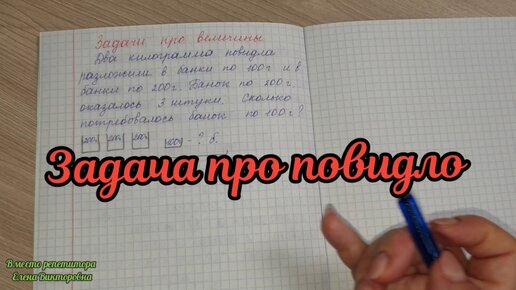 Задачи про величины
Два килограмма повидла
разложили в банки по 100г и в
банки по 200г. Банок по 200г
оказалось 3 штуки. Сколько
потребовалось банок по 100г?
200г 200г 200г 100г - ? б.
Задача про повидло
Вместо репетитора
Елена Викторовна